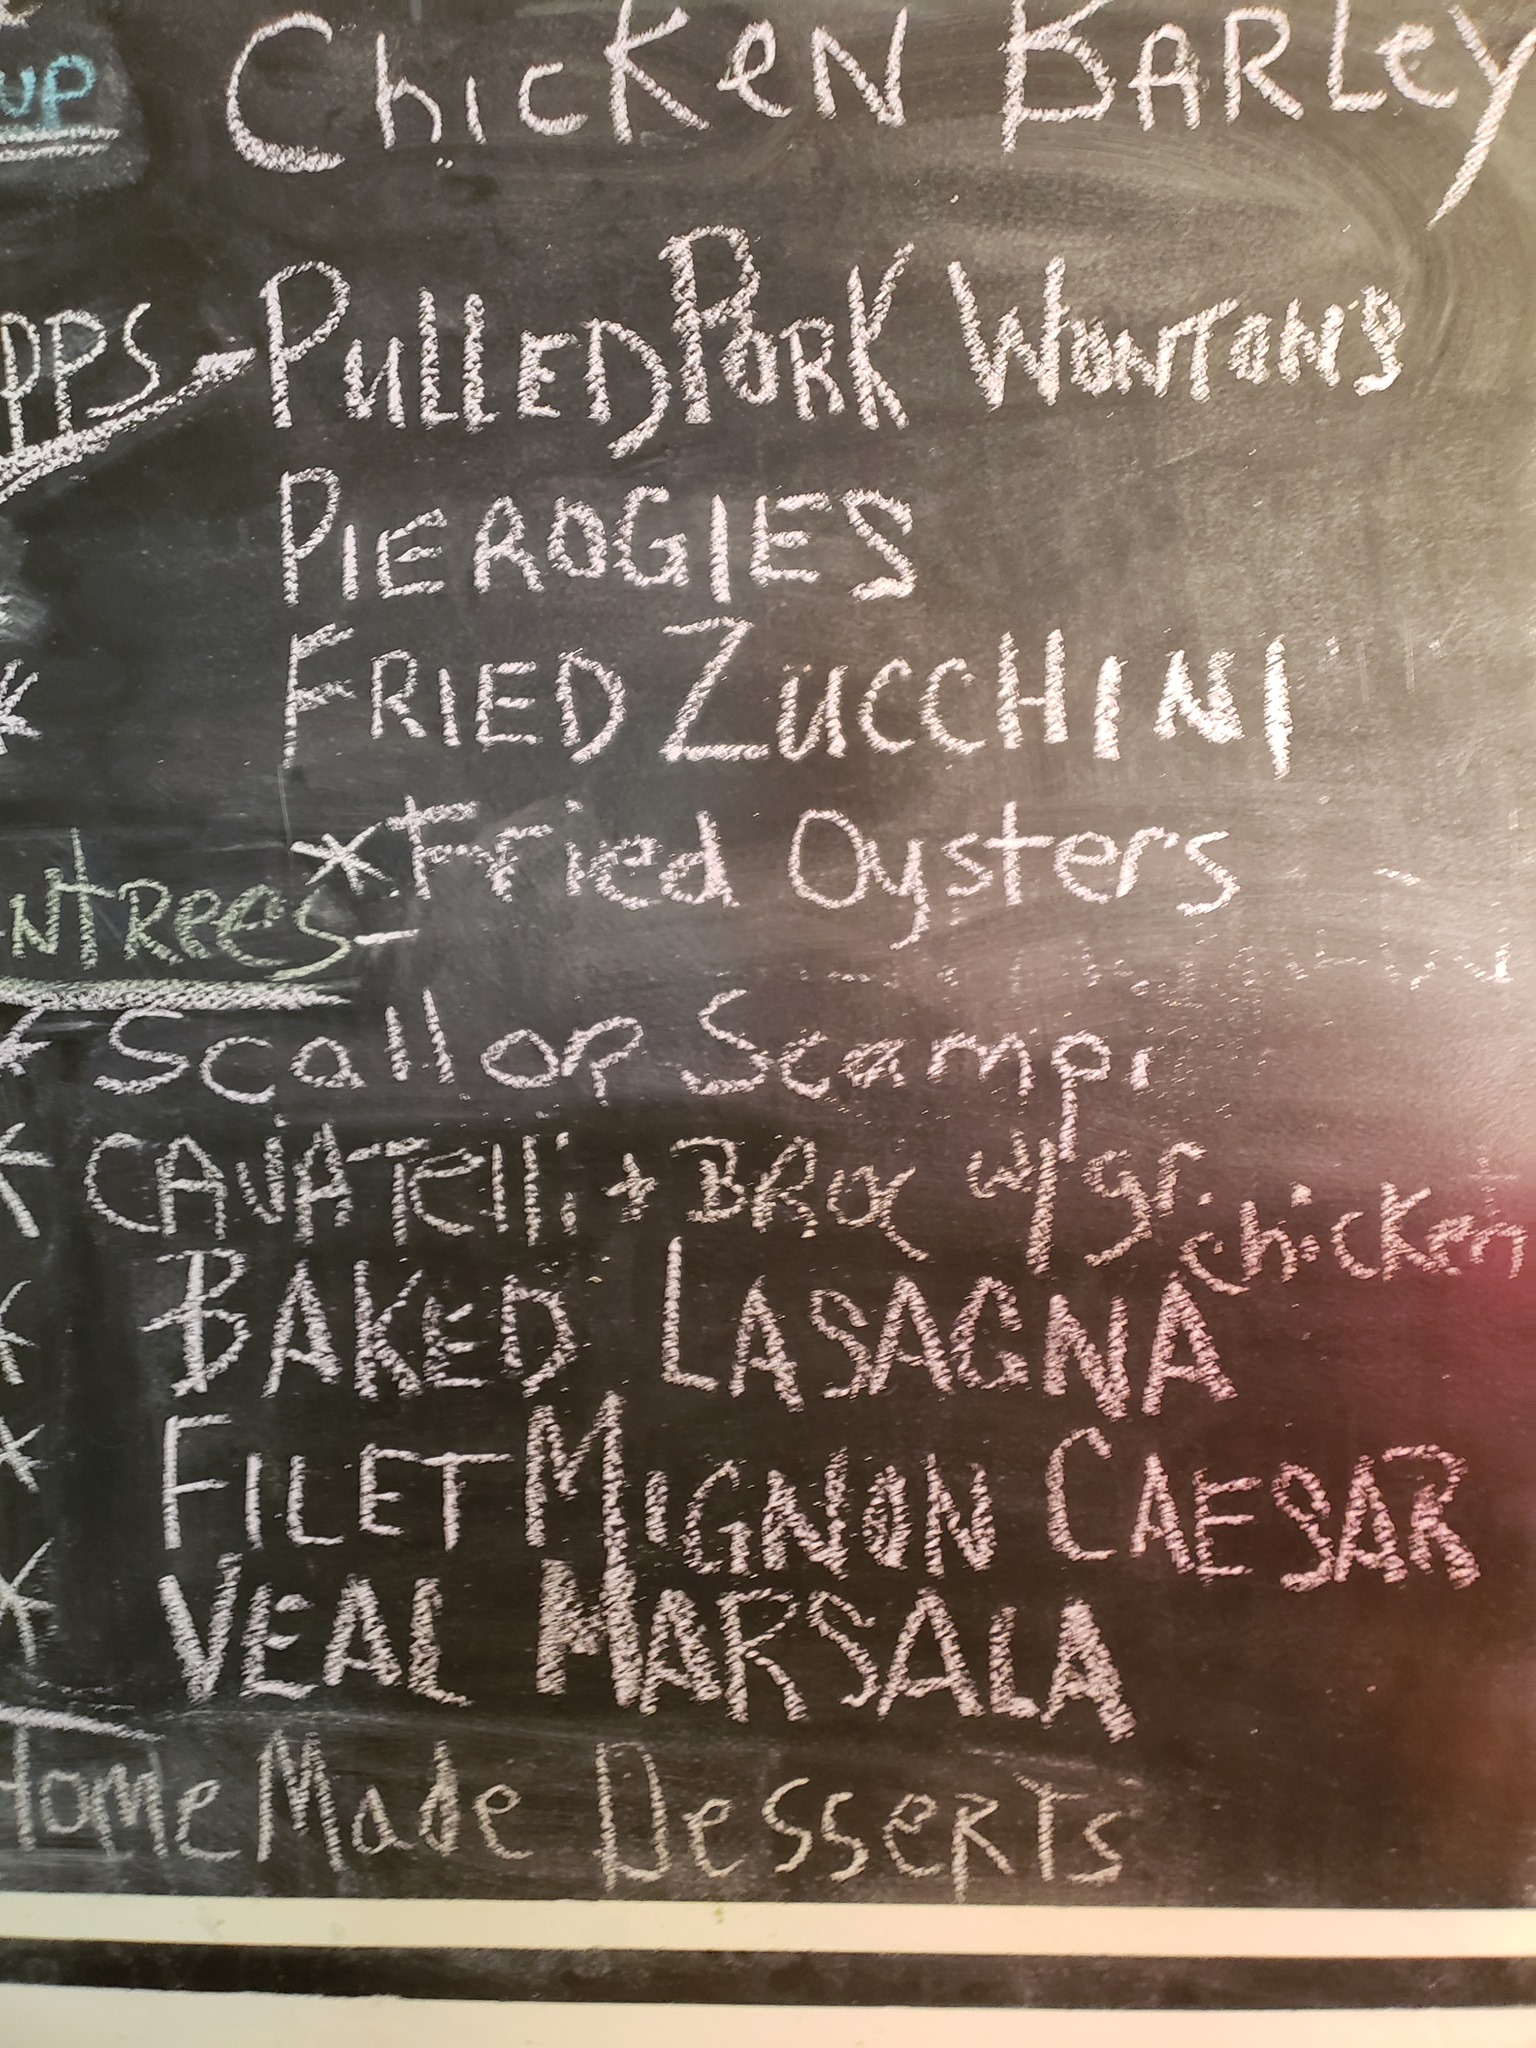 up Chicken Barley
PPS - Pulled Pork Wontons
Pierogies
Fried Zucchini
*Fried Oysters
ntrees-
* Scallop Scampi
* Cavatelli + Broc w/gr. chicken
* Baked Lasagna
* Filet Mignon Caesar
* Veal Marsala
Home Made Desserts